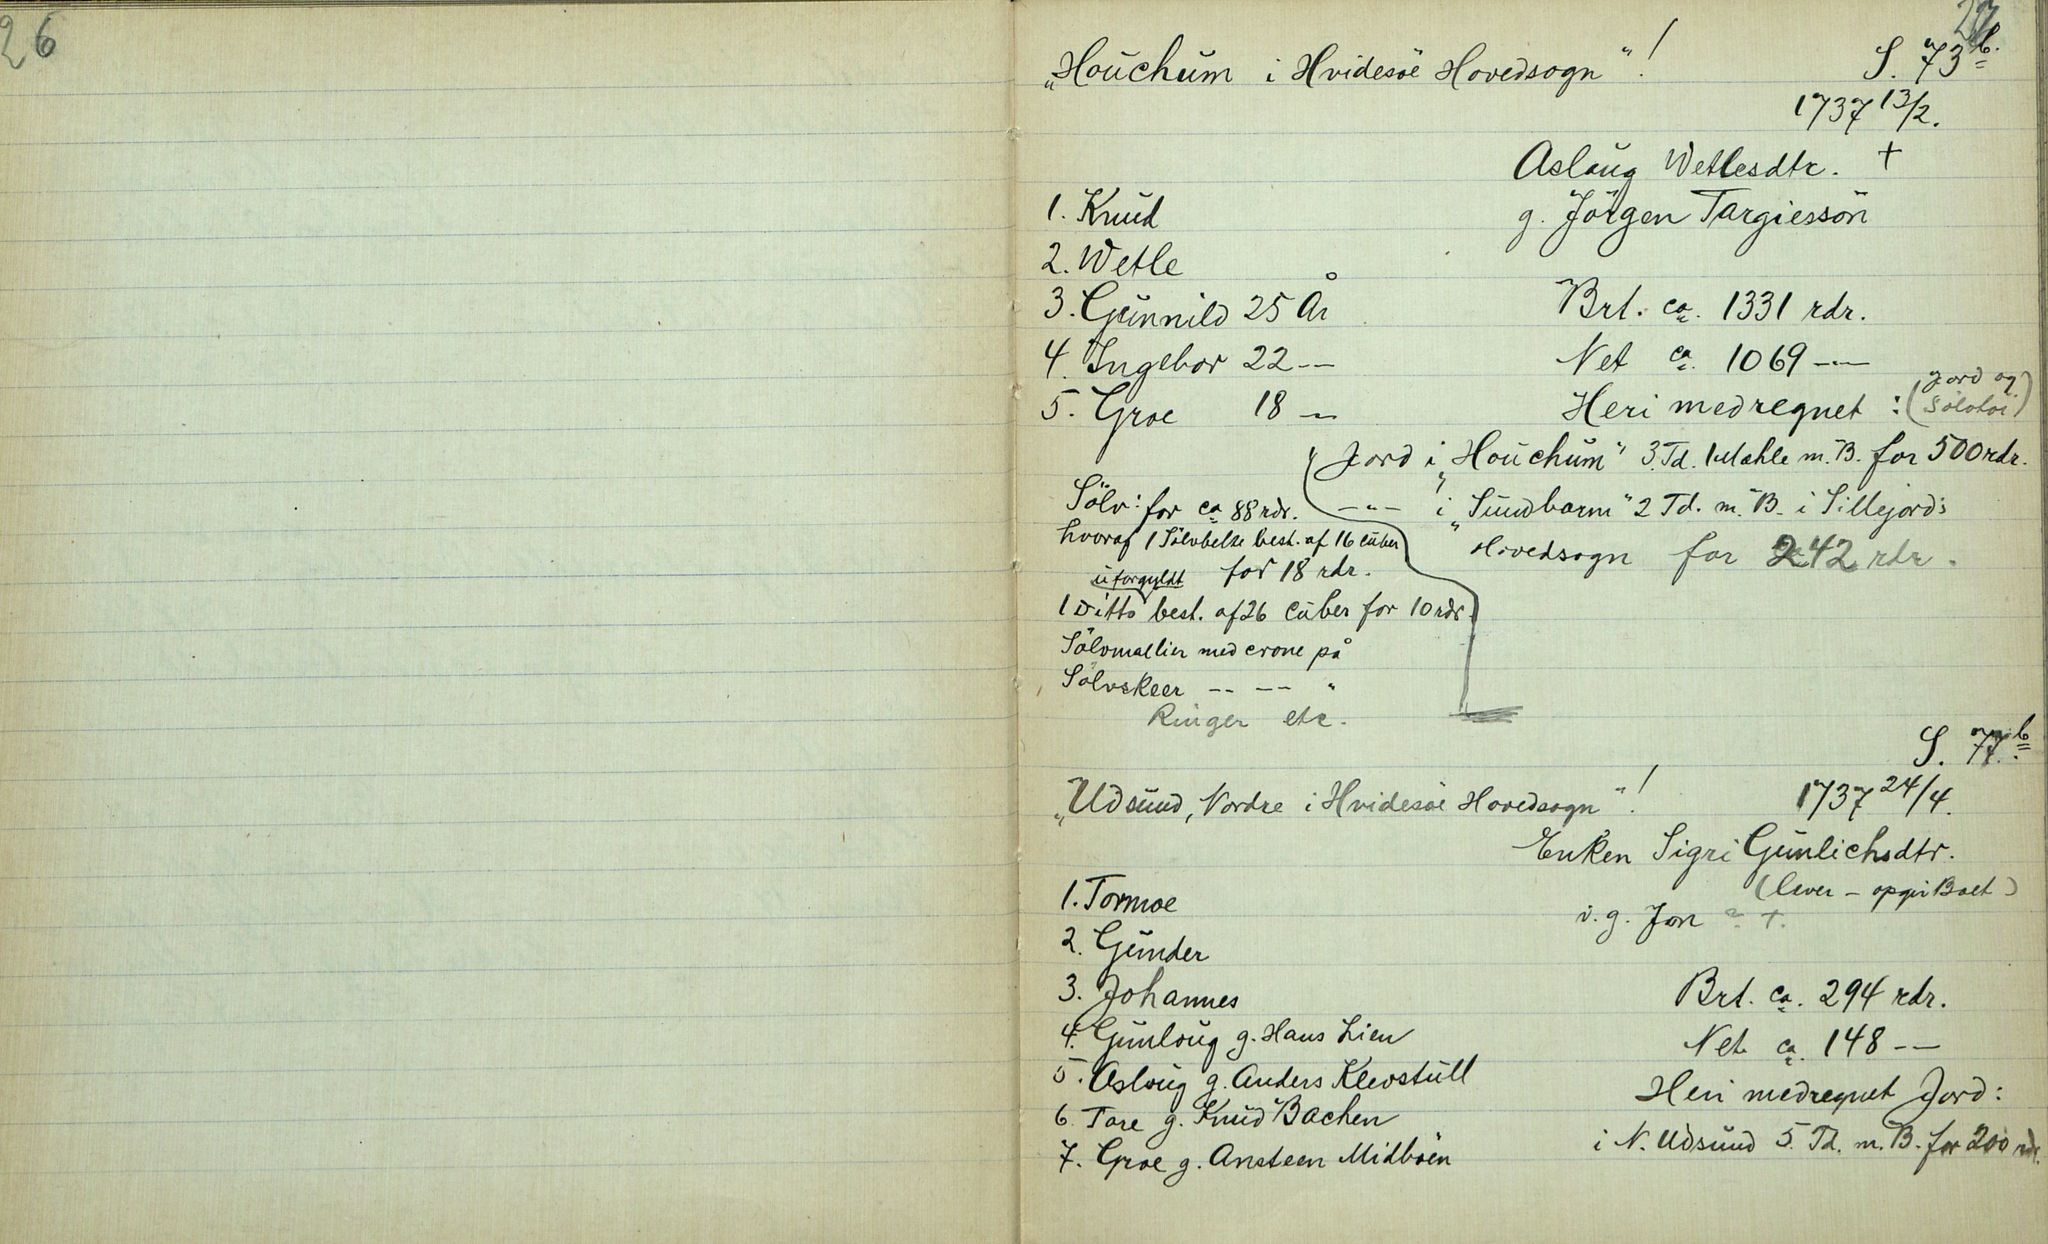 26
27
„Houchum i Hvidesöe Hovedsogn"!
S. 73 b.
1737 13/2.
Aslaug Wetlesdtr. +
g. Jörgen Targiessön
1. Knud
2. Wetle
3. Gunnild 25 År
4. Ingebor 22 —
5. Groe 18 —
Brt. ca. 1331 rdr.
Net ca. 1069 —
Heri medregnet : (Jord og Sölvtöi)
Jord i „Houchum" 3 Td. 1 Mæhle m. B. for 500 rdr.
—"— i „Sundbarm" 2 Td. m. B. i Sillejord:
Hovedsogn for 242 rdr.
Sölv: for ca 88 rdr.
hvoraf 1 Sölvbelte best. af 16 Cuber
uforgyldt for 18 rdr.
1 Ditto best. af 26 Cuber for 10 rdr.
Sölvmallier med crone på
Sölvskeer -- -- "
Ringer etc.
S. 77 b.
„Udsund, Nordre i Hvidesöe Hovedsogn"!
1737 24/4.
Enken Sigri Gunlichsdtr.
(lever - opgir Boet)
v. g. Jon ? +.
1. Tormoe
2. Gunder
3. Johannes
4. Gunloug g. Hans Lien
5. Asloug g. Anders Klevstull
6. Tore g. Knud Bachen
7. Groe g. Ansteen Midböen
Brt. ca. 294 rdr.
Net ca. 148 —
Heri medregnet Jord:
i N. Udsund 5 Td. m. B. for 200 rdr.